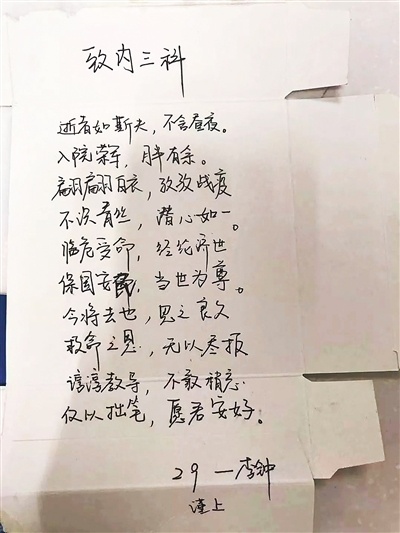 致内三科
逝者如斯夫，不舍昼夜。
入院荣军，月半有余。
翩翩白衣，孜孜战疫
不染青丝，潜心如一。
临危受命，经纶济世
保国安民，当世为尊。
今将去也，思之良久
救命之恩，无以尽报
谆谆教导，不敢稍忘
仅以拙笔，愿君安好。
29 一李钟
谨上